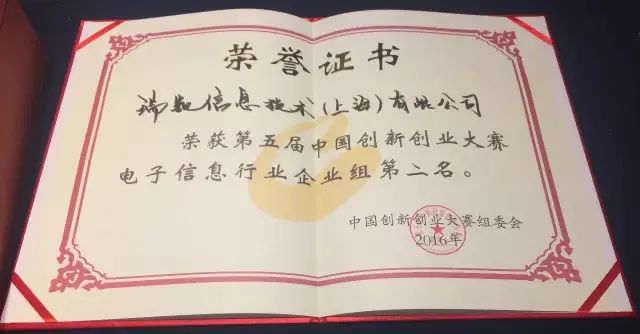 荣誉证书
瑞数信息技术(上海)有限公司
荣获第五届中国创新创业大赛
电子信息行业企业组第二名。
中国创新创业大赛组委会
2016年